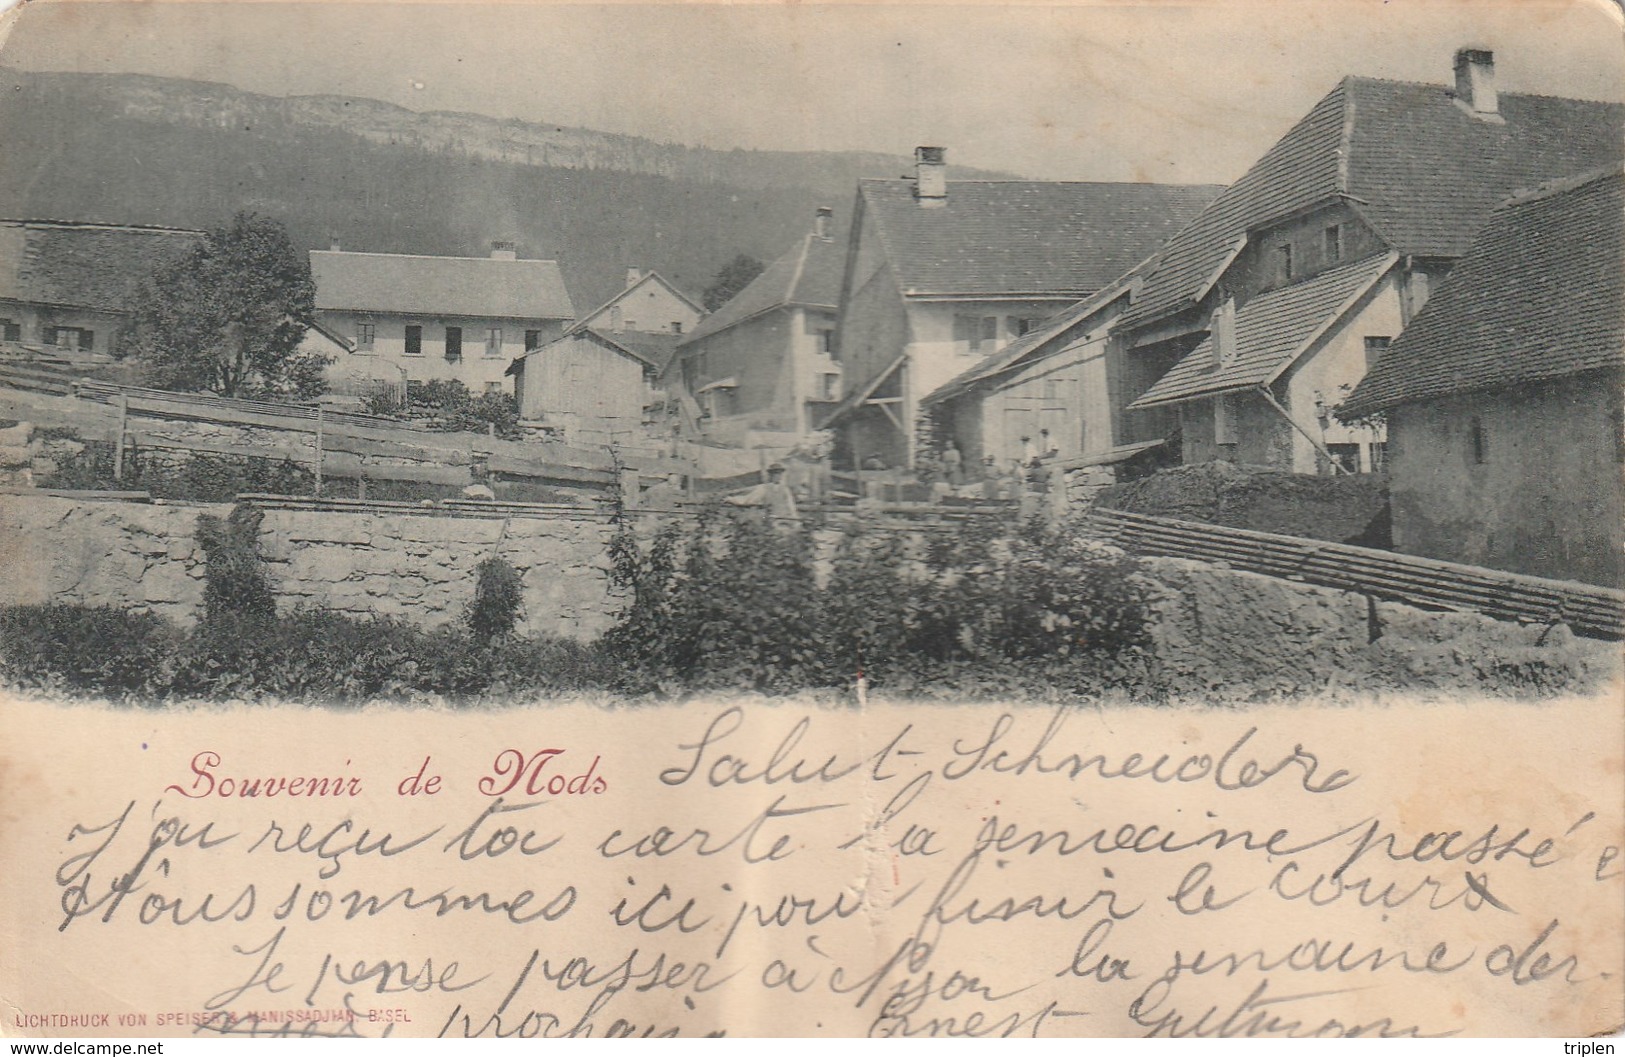 Souvenir de Nods
Salut Schneider
J'ai reçu ta carte la semaine passé e
Nous sommes ici pour finir le cours
Je pense passer à la semaine der-
LICHTDRUCK VON SPEISER & MANISSADJIAN BASEL
prochain Ernest
delcampe.net
triplen